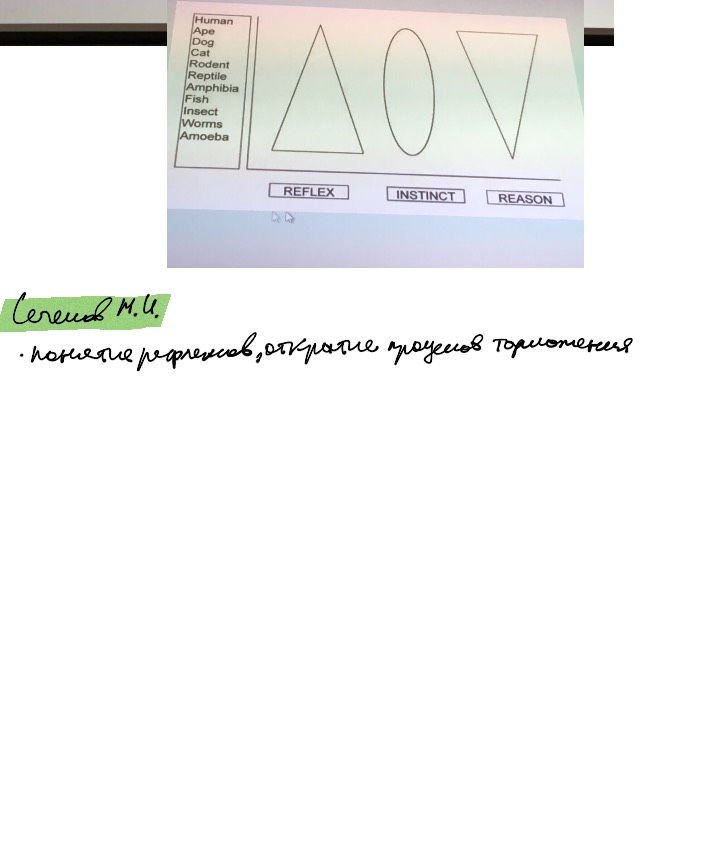 Human
Ape
Dog
Cat
Rodent
Reptile
Amphibia
Fish
Insect
Worms
Amoeba
REFLEX INSTINCT REASON
Сеченов М.И.
· понятие рефлексов, открытие процессов торможения